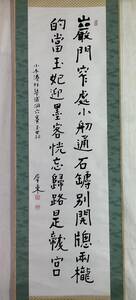 巖門窄處小舠通石罅別開牕兩櫳
的當玉妃迎墨客恍忘歸路是龍宮